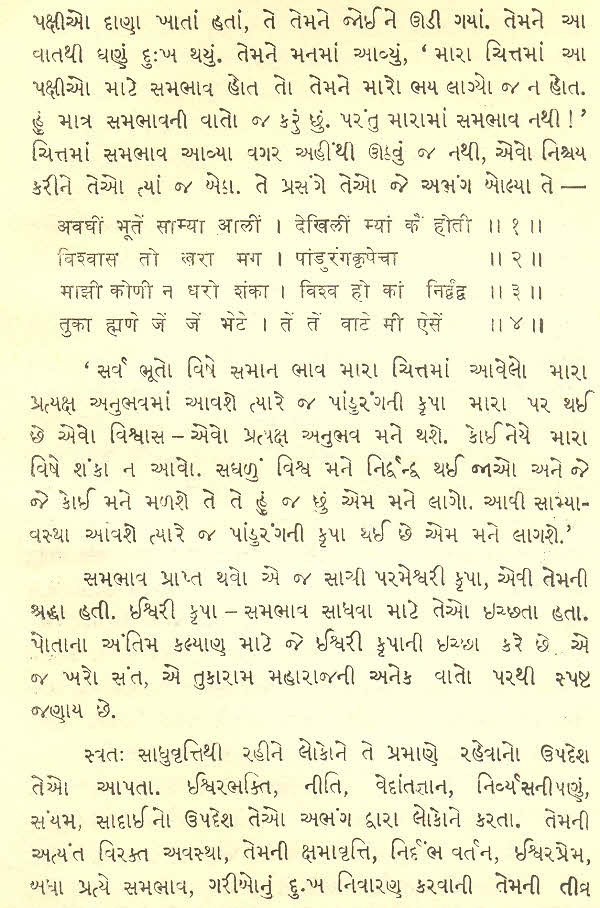 પક્ષીઓ દાણા ખાતાં હતાં, તે તેમને જોઈને ઊડી ગયાં. તેમને આ
વાતથી ઘણું દુઃખ થયું. તેમને મનમાં આવ્યું, ‘ મારા ચિત્તમાં આ
પક્ષીઓ માટે સમભાવ હોત તો તેમને મારો ભય લાગ્યો જ ન હોત.
હું માત્ર સમભાવની વાતો જ કરું છું. પરંતુ મારામાં સમભાવ નથી ! ’
ચિત્તમાં સમભાવ આવ્યા વગર અહીંથી ઊઠવું જ નથી, એવો નિશ્ચય
કરીને તેઓ ત્યાં જ બેઠા. તે પ્રસંગે તેઓ જે અભંગ બોલ્યા તે —
अवघीं भूतें साम्या आलीं । देखिलीं म्यां कैं होती ॥ १ ॥
विश्वास तो खरा मग । पांडुरंगकृपेचा ॥ २ ॥
माझी कोणी न धरो शंका । विश्व हो कां निर्द्वंद्व ॥ ३ ॥
तुका ह्मणे जें जें भेटे । तें तें वाटे मी ऐसें ॥ ४ ॥
‘ સર્વ ભૂતો વિષે સમાન ભાવ મારા ચિત્તમાં આવેલો મારા
પ્રત્યક્ષ અનુભવમાં આવશે ત્યારે જ પાંડુરંગની કૃપા મારા પર થઈ
છે એવો વિશ્વાસ – એવો પ્રત્યક્ષ અનુભવ મને થશે. કોઈનેયે મારા
વિષે શંકા ન આવો. સઘળું વિશ્વ મને નિર્દ્વન્દ્વ થઈ જાઓ અને જે
જે કોઈ મને મળશે તે તે હું જ છું એમ મને લાગો. આવી સામ્યા-
વસ્થા આવશે ત્યારે જ પાંડુરંગની કૃપા થઈ છે એમ મને લાગશે.’
સમભાવ પ્રાપ્ત થવો એ જ સાચી પરમેશ્વરી કૃપા, એવી તેમની
શ્રદ્ધા હતી. ઈશ્વરી કૃપા – સમભાવ સાધવા માટે તેઓ ઇચ્છતા હતા.
પોતાના અંતિમ કલ્યાણ માટે જે ઈશ્વરી કૃપાની ઇચ્છા કરે છે એ
જ ખરો સંત, એ તુકારામ મહારાજની અનેક વાતો પરથી સ્પષ્ટ
જણાય છે.
સ્વતઃ સાધુવૃત્તિથી રહીને લોકોને તે પ્રમાણે રહેવાનો ઉપદેશ
તેઓ આપતા. ઈશ્વરભક્તિ, નીતિ, વેદાંતજ્ઞાન, નિર્વ્યસનીપણું,
સંયમ, સાદાઈનો ઉપદેશ તેઓ અભંગ દ્વારા લોકોને કરતા. તેમની
અત્યંત વિરક્ત અવસ્થા, તેમની ક્ષમાવૃત્તિ, નિર્દંભ વર્તન, ઈશ્વરપ્રેમ,
બધા પ્રત્યે સમભાવ, ગરીબોનું દુઃખ નિવારણ કરવાની તેમની તીવ્ર